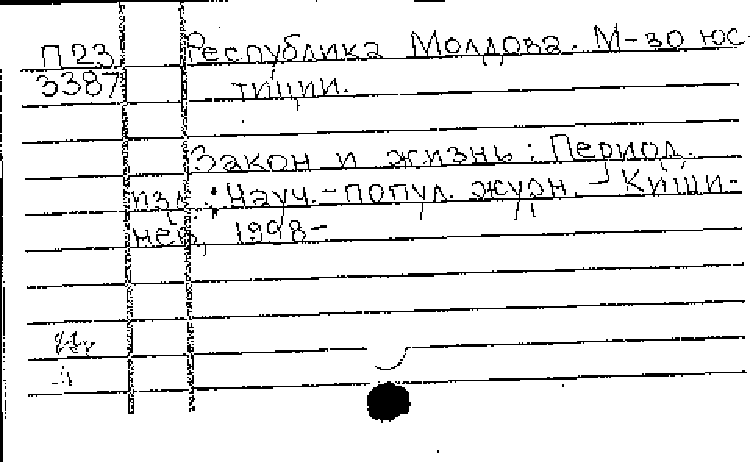 П23 Республика Молдова. М-во юс-
3387 тиции.
Закон и жизнь: Период.
изд.: Науч.-попул. журн. - Киши-
нев, 1998-